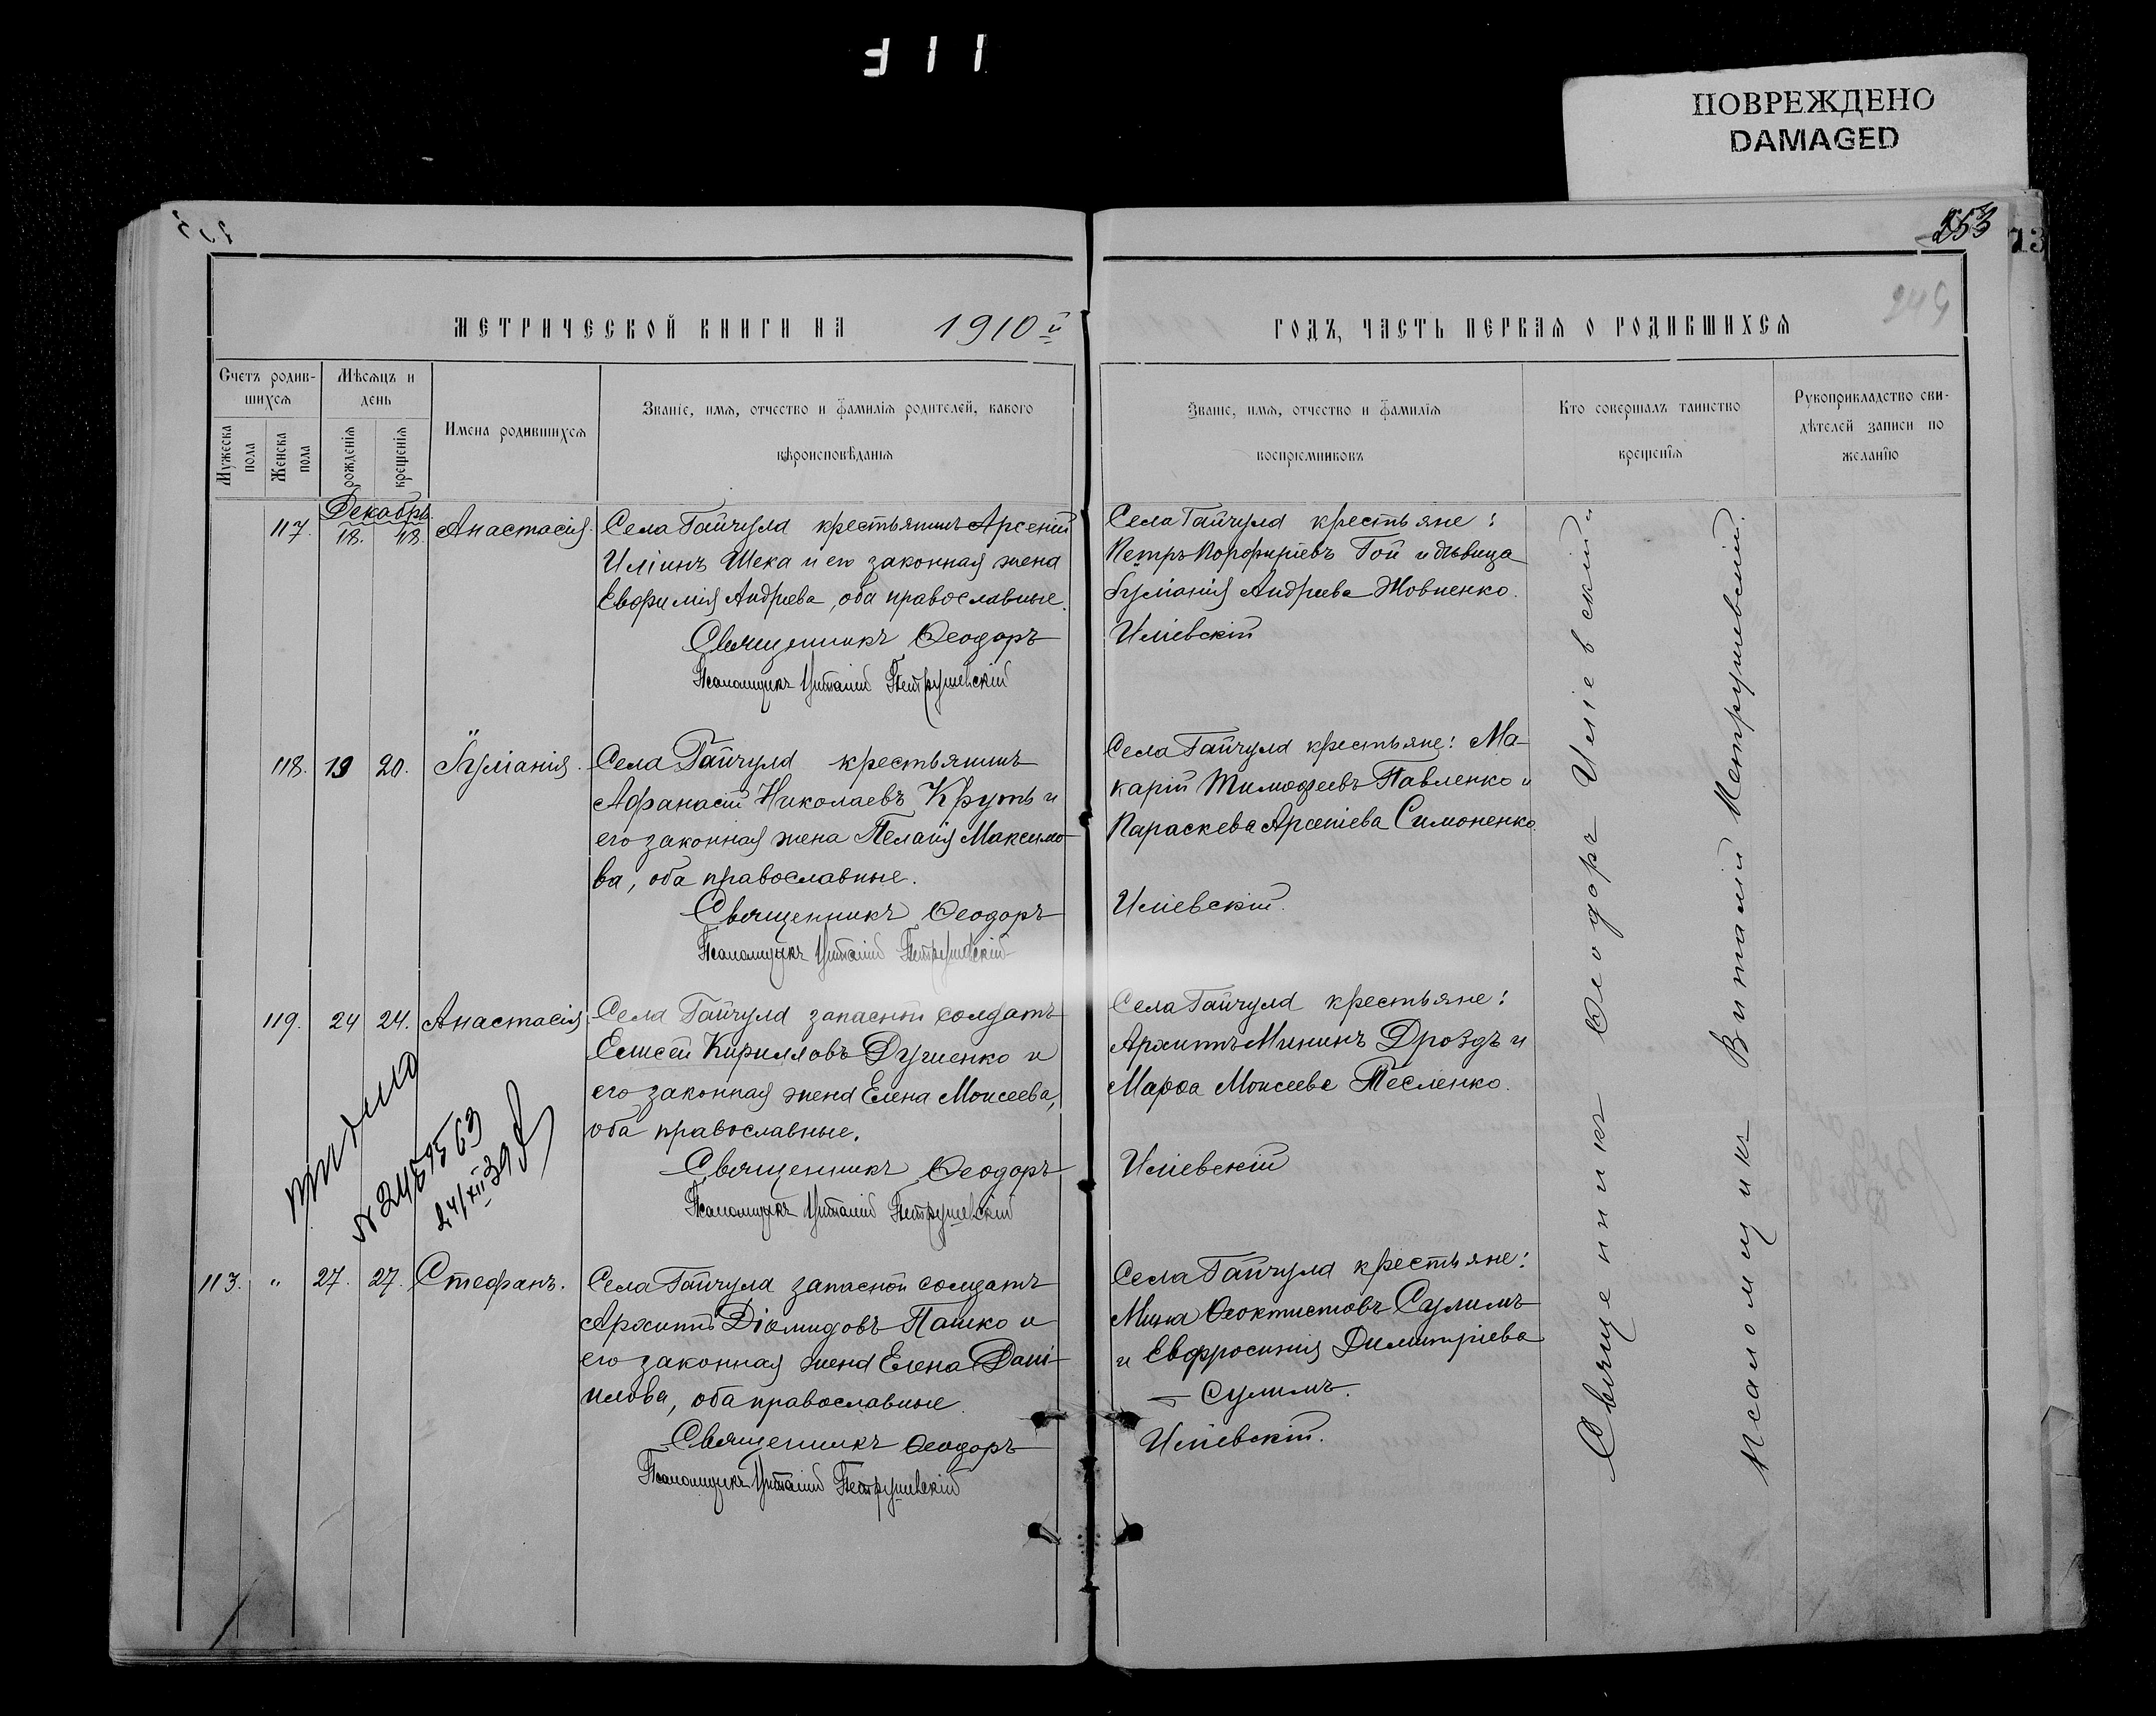 ПОВРЕЖДЕНО
DAMAGED
253
249
МЕТРИЧЕСКОЙ КНИГИ НА 1910й ГОДЪ, ЧАСТЬ ПЕРВАЯ О РОДИВШИХСЯ
Счетъ родив-
шихся
Мѣсяцъ и
день
Мужеска
пола
Женска
пола
рожденія
крещенія
Имена родившихся
Званіе, имя, отчество и фамилія родителей, какого
вѣроисповѣданія
Званіе, имя, отчество и фамилія
воспріемниковъ
Кто совершалъ таинство
крещенія
Рукоприкладство сви-
дѣтелей записи по
желанію
Декабрь.
117. 18. 18. Анастасія.
Села Гайчула крестьянинъ Арсеній
Иліинъ Шека и его законная жена
Евфимія Андреева, оба православные.
Священникъ Ѳеодоръ Иліевскій
Псаломщикъ Виталій Петрушевскій
Села Гайчула крестьяне:
Петръ Порфиріевъ Гой и дѣвица
Іуліанія Андреева Жовненко.
118. 19 20. Іуліанія.
Села Гайчула крестьянинъ
Афанасій Николаевъ Круть и
его законная жена Пелагія Максимо-
ва, оба православные.
Священникъ Ѳеодоръ Иліевскій.
Псаломщикъ Виталій Петрушевскій
Села Гайчула крестьяне: Ма-
карій Тимофеевъ Павленко и
Параскева Арсеніева Симоненко.
119. 24 24. Анастасія
Села Гайчула запасной солдатъ
Елисей Кирилловъ Дугиенко и
его законная жена Елена Моисеева,
оба православные.
Священникъ Ѳеодоръ Иліевскій
Псаломщикъ Виталій Петрушевскій
Села Гайчула крестьяне:
Архиппъ Мининъ Дроздъ и
Марѳа Моисеева Тесленко.
24/XII 39
113. " 27. 27. Стефанъ.
Села Гайчула запасной солдатъ
Архиппъ Діомидовъ Пашко и
его законная жена Елена Дані-
илова, оба православные.
Священникъ Ѳеодоръ Иліевскій.
Псаломщикъ Виталій Петрушевскій
Села Гайчула крестьяне:
Мина Ѳеоктистовъ Сулимъ
и Евфросинія Димитріева
Сулимъ.
Священникъ Ѳеодоръ Иліевскій
Псаломщикъ Виталій Петрушевскій.